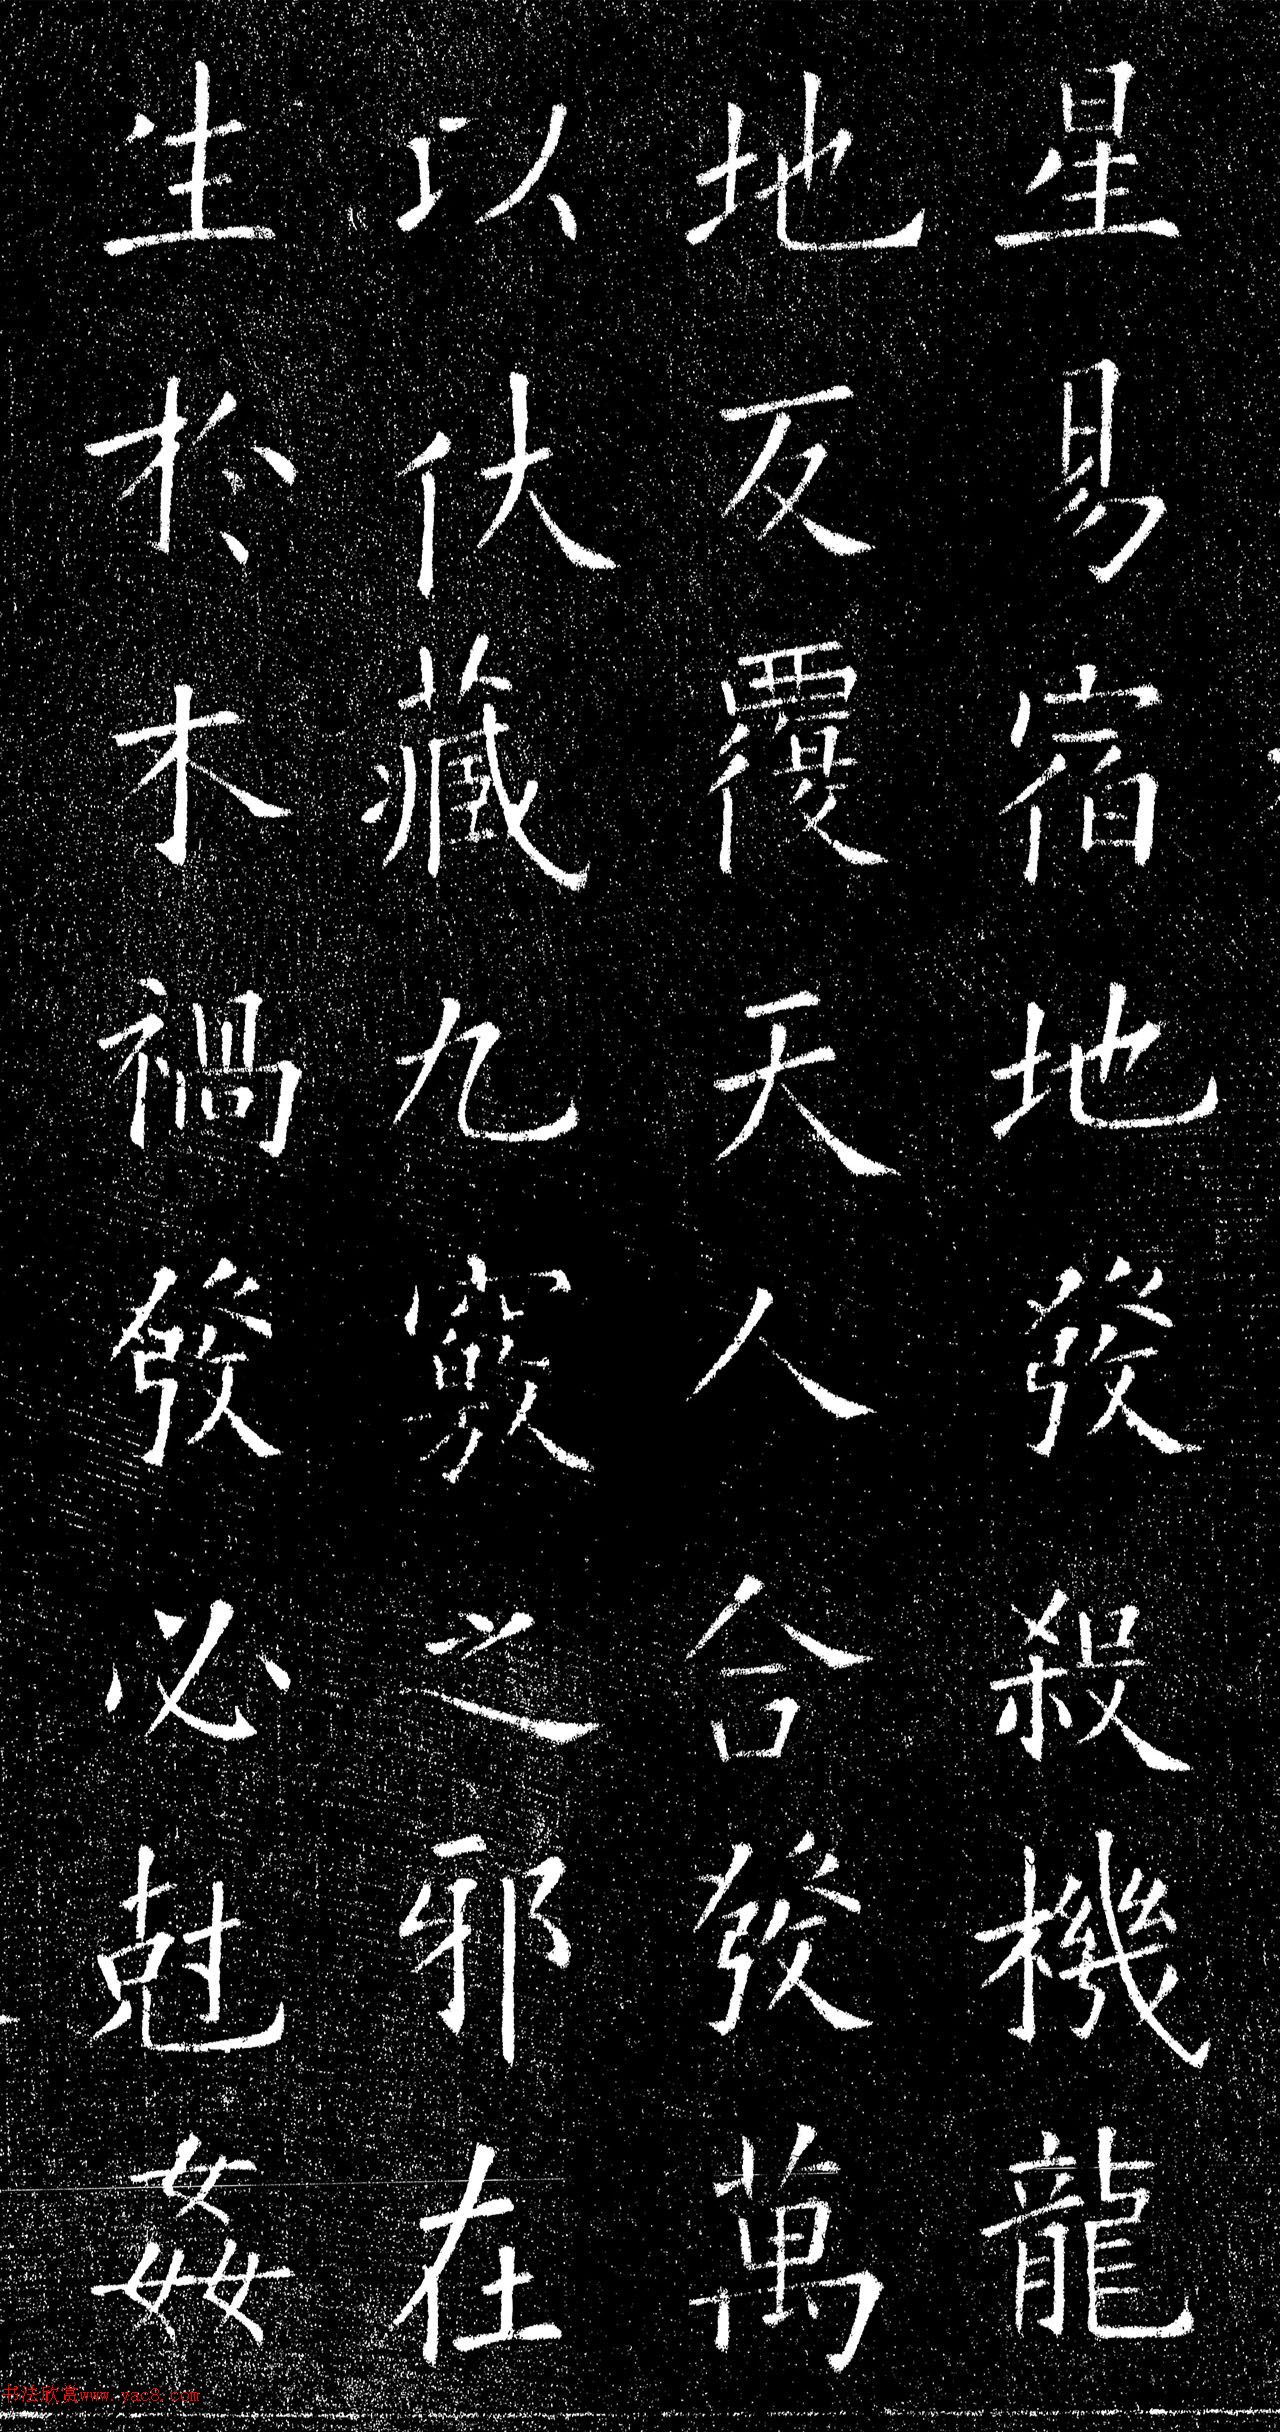 星易宿地發殺機龍
地反覆天人合發萬
以伏藏九竅之邪在
生於木禍發必尅姦
书法欣赏www.yac8.com